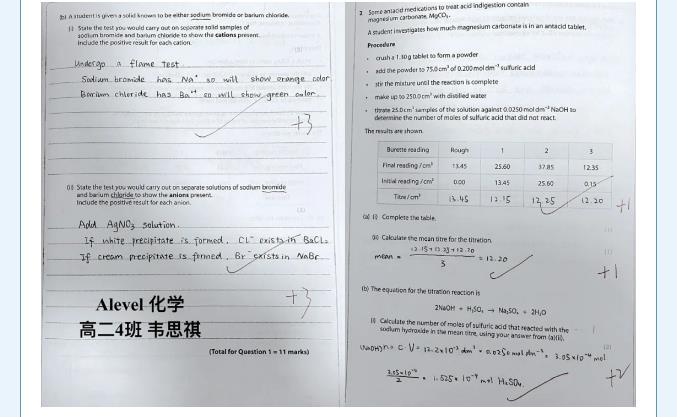 (b) A student is given a solid known to be either sodium bromide or barium chloride.
(i) State the test you would carry out on separate solid samples of
sodium bromide and barium chloride to show the cations present.
Include the positive result for each cation.
(3)
Undergo a flame test.
Sodium bromide has Na⁺ so will show orange color
Barium chloride has Ba²⁺ so will show green color
+3
(ii) State the test you would carry out on separate solutions of sodium bromide
and barium chloride to show the anions present.
Include the positive result for each anion.
(3)
Add AgNO₃ solution.
If white precipitate is formed, Cl⁻ exists in BaCl₂
If cream precipitate is formed, Br⁻ exists in NaBr
+3
Alevel 化学
高二4班 韦思祺
(Total for Question 1 = 11 marks)
2 Some antacid medications to treat acid indigestion contain
magnesium carbonate, MgCO₃.
A student investigates how much magnesium carbonate is in an antacid tablet.
Procedure
• crush a 1.10 g tablet to form a powder
• add the powder to 75.0 cm³ of 0.200 mol dm⁻³ sulfuric acid
• stir the mixture until the reaction is complete
• make up to 250.0 cm³ with distilled water
• titrate 25.0 cm³ samples of the solution against 0.0250 mol dm⁻³ NaOH to
determine the number of moles of sulfuric acid that did not react.
The results are shown.
Burette reading Rough 1 2 3
Final reading / cm³ 13.45 25.60 37.85 12.35
Initial reading / cm³ 0.00 13.45 25.60 0.15
Titre / cm³ 13.45 12.15 12.25 12.20
+1
(a) (i) Complete the table.
(1)
(ii) Calculate the mean titre for the titration.
(1)
mean = 12.15+12.25+12.20 / 3 = 12.20
+1
(b) The equation for the titration reaction is
2NaOH + H₂SO₄ → Na₂SO₄ + 2H₂O
(i) Calculate the number of moles of sulfuric acid that reacted with the
sodium hydroxide in the mean titre, using your answer from (a)(ii).
(2)
(NaOH) n = C·V = 12.2×10⁻³ dm³ × 0.0250 mol dm⁻³ = 3.05×10⁻⁴ mol
3.05×10⁻⁴ / 2 = 1.525×10⁻⁴ mol H₂SO₄.
+2